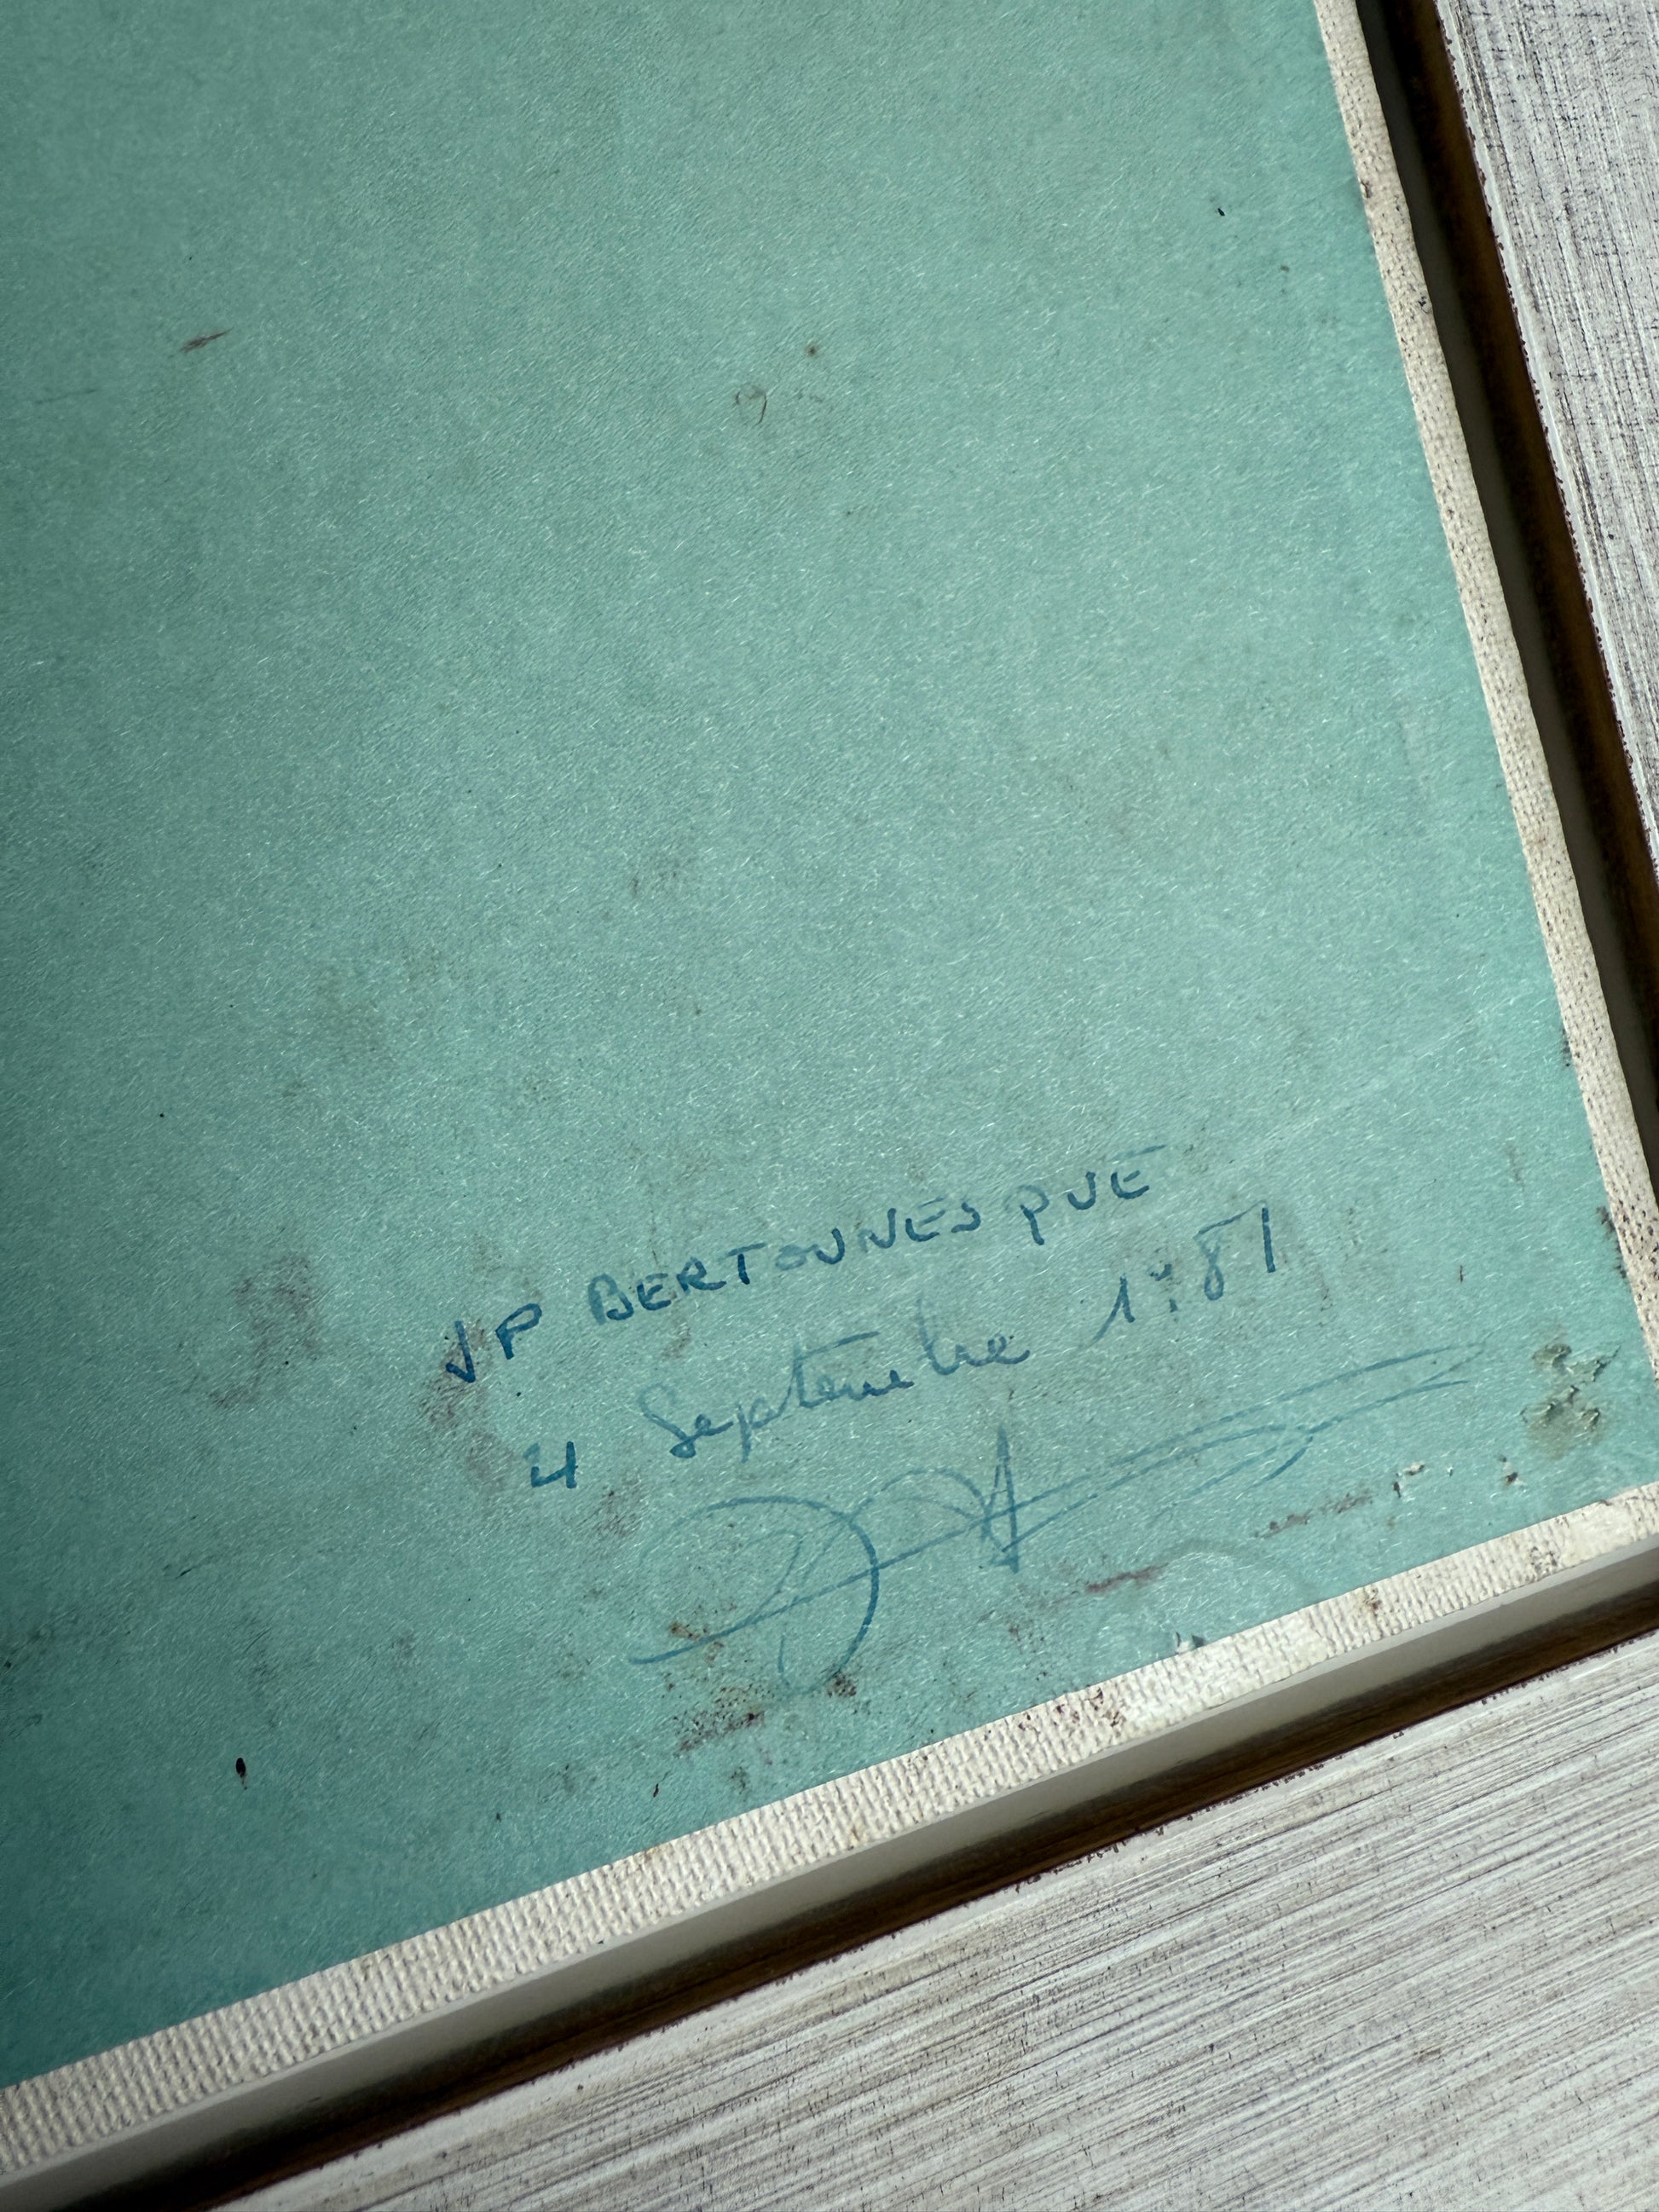 JP BERTOUNESQUE
4 Septembre 1981